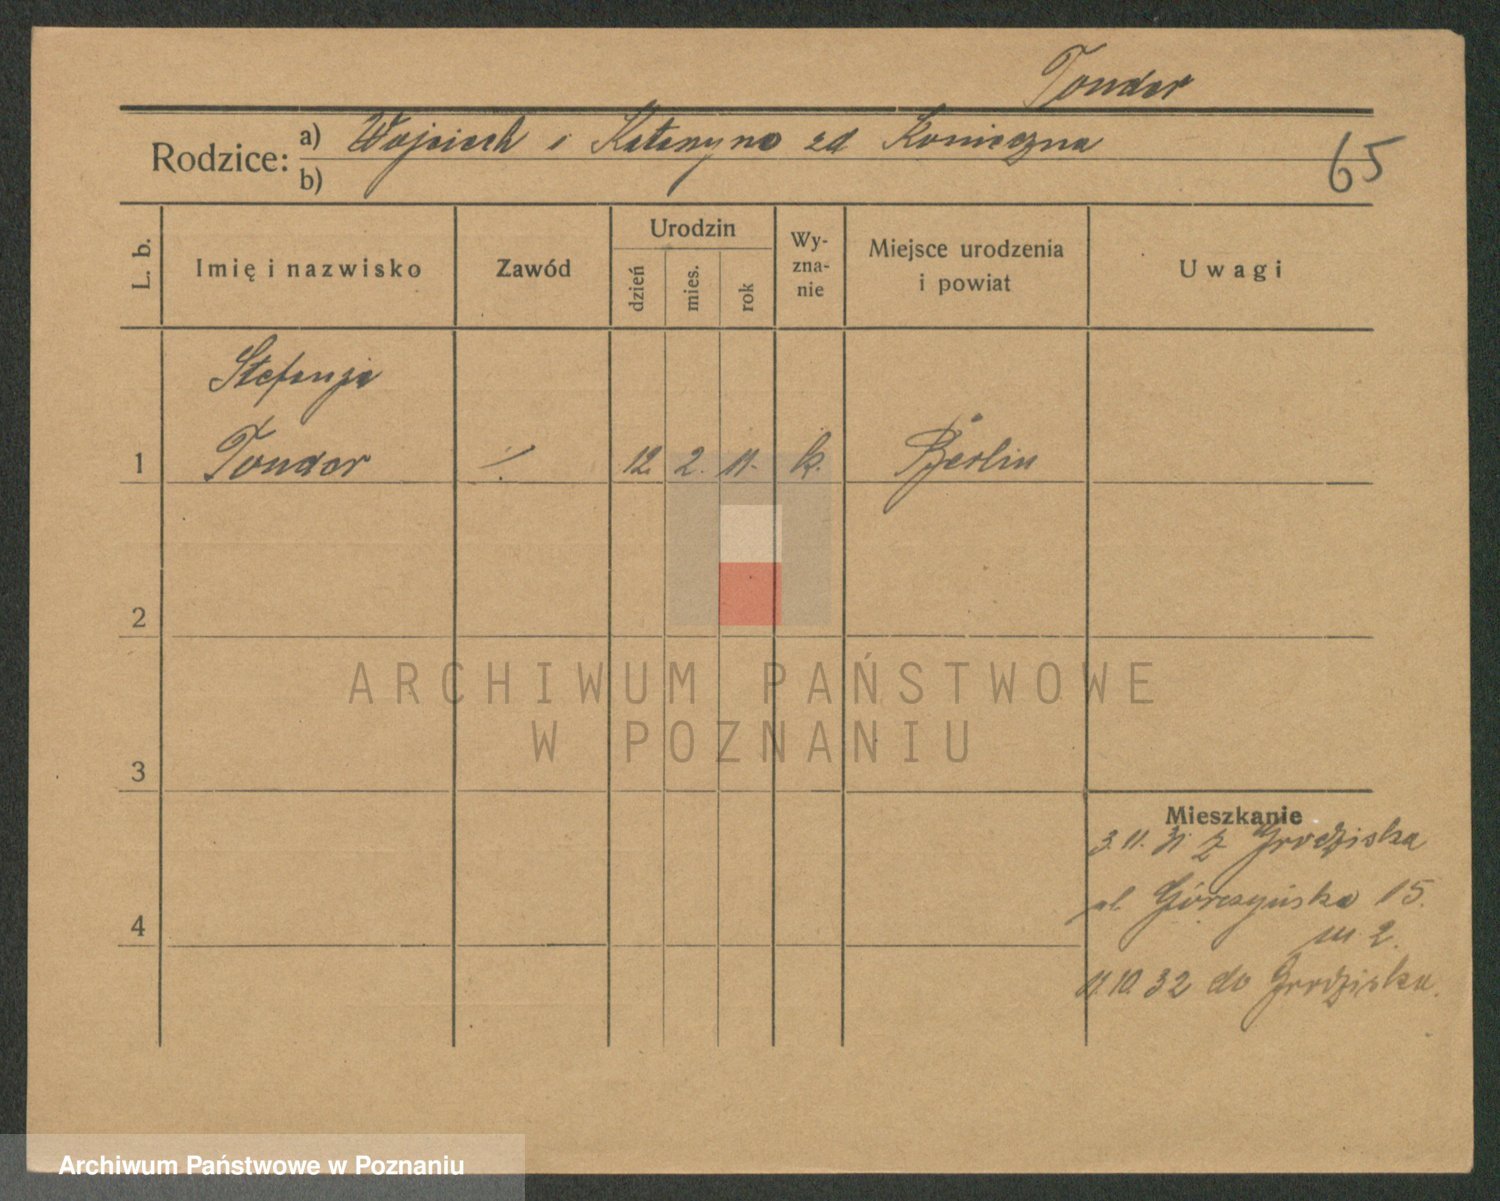 Tonder
Rodzice: a) Wojciech i Katarzyna zd Konieczna
b)
65
L. b.
Imię i nazwisko
Zawód
Urodzin
dzień
mies.
rok
Wy-
zna-
nie
Miejsce urodzenia
i powiat
Uwagi
Stefanja
1 Tonder ./. 12. 2. 11. k. Berlin
2
3
4
Mieszkanie
3.11.31 z Grodziska
ul. Górczyńska 15.
m 2.
11.10.32 do Grodziska.
ARCHIWUM PAŃSTWOWE
W POZNANIU
Archiwum Państwowe w Poznaniu